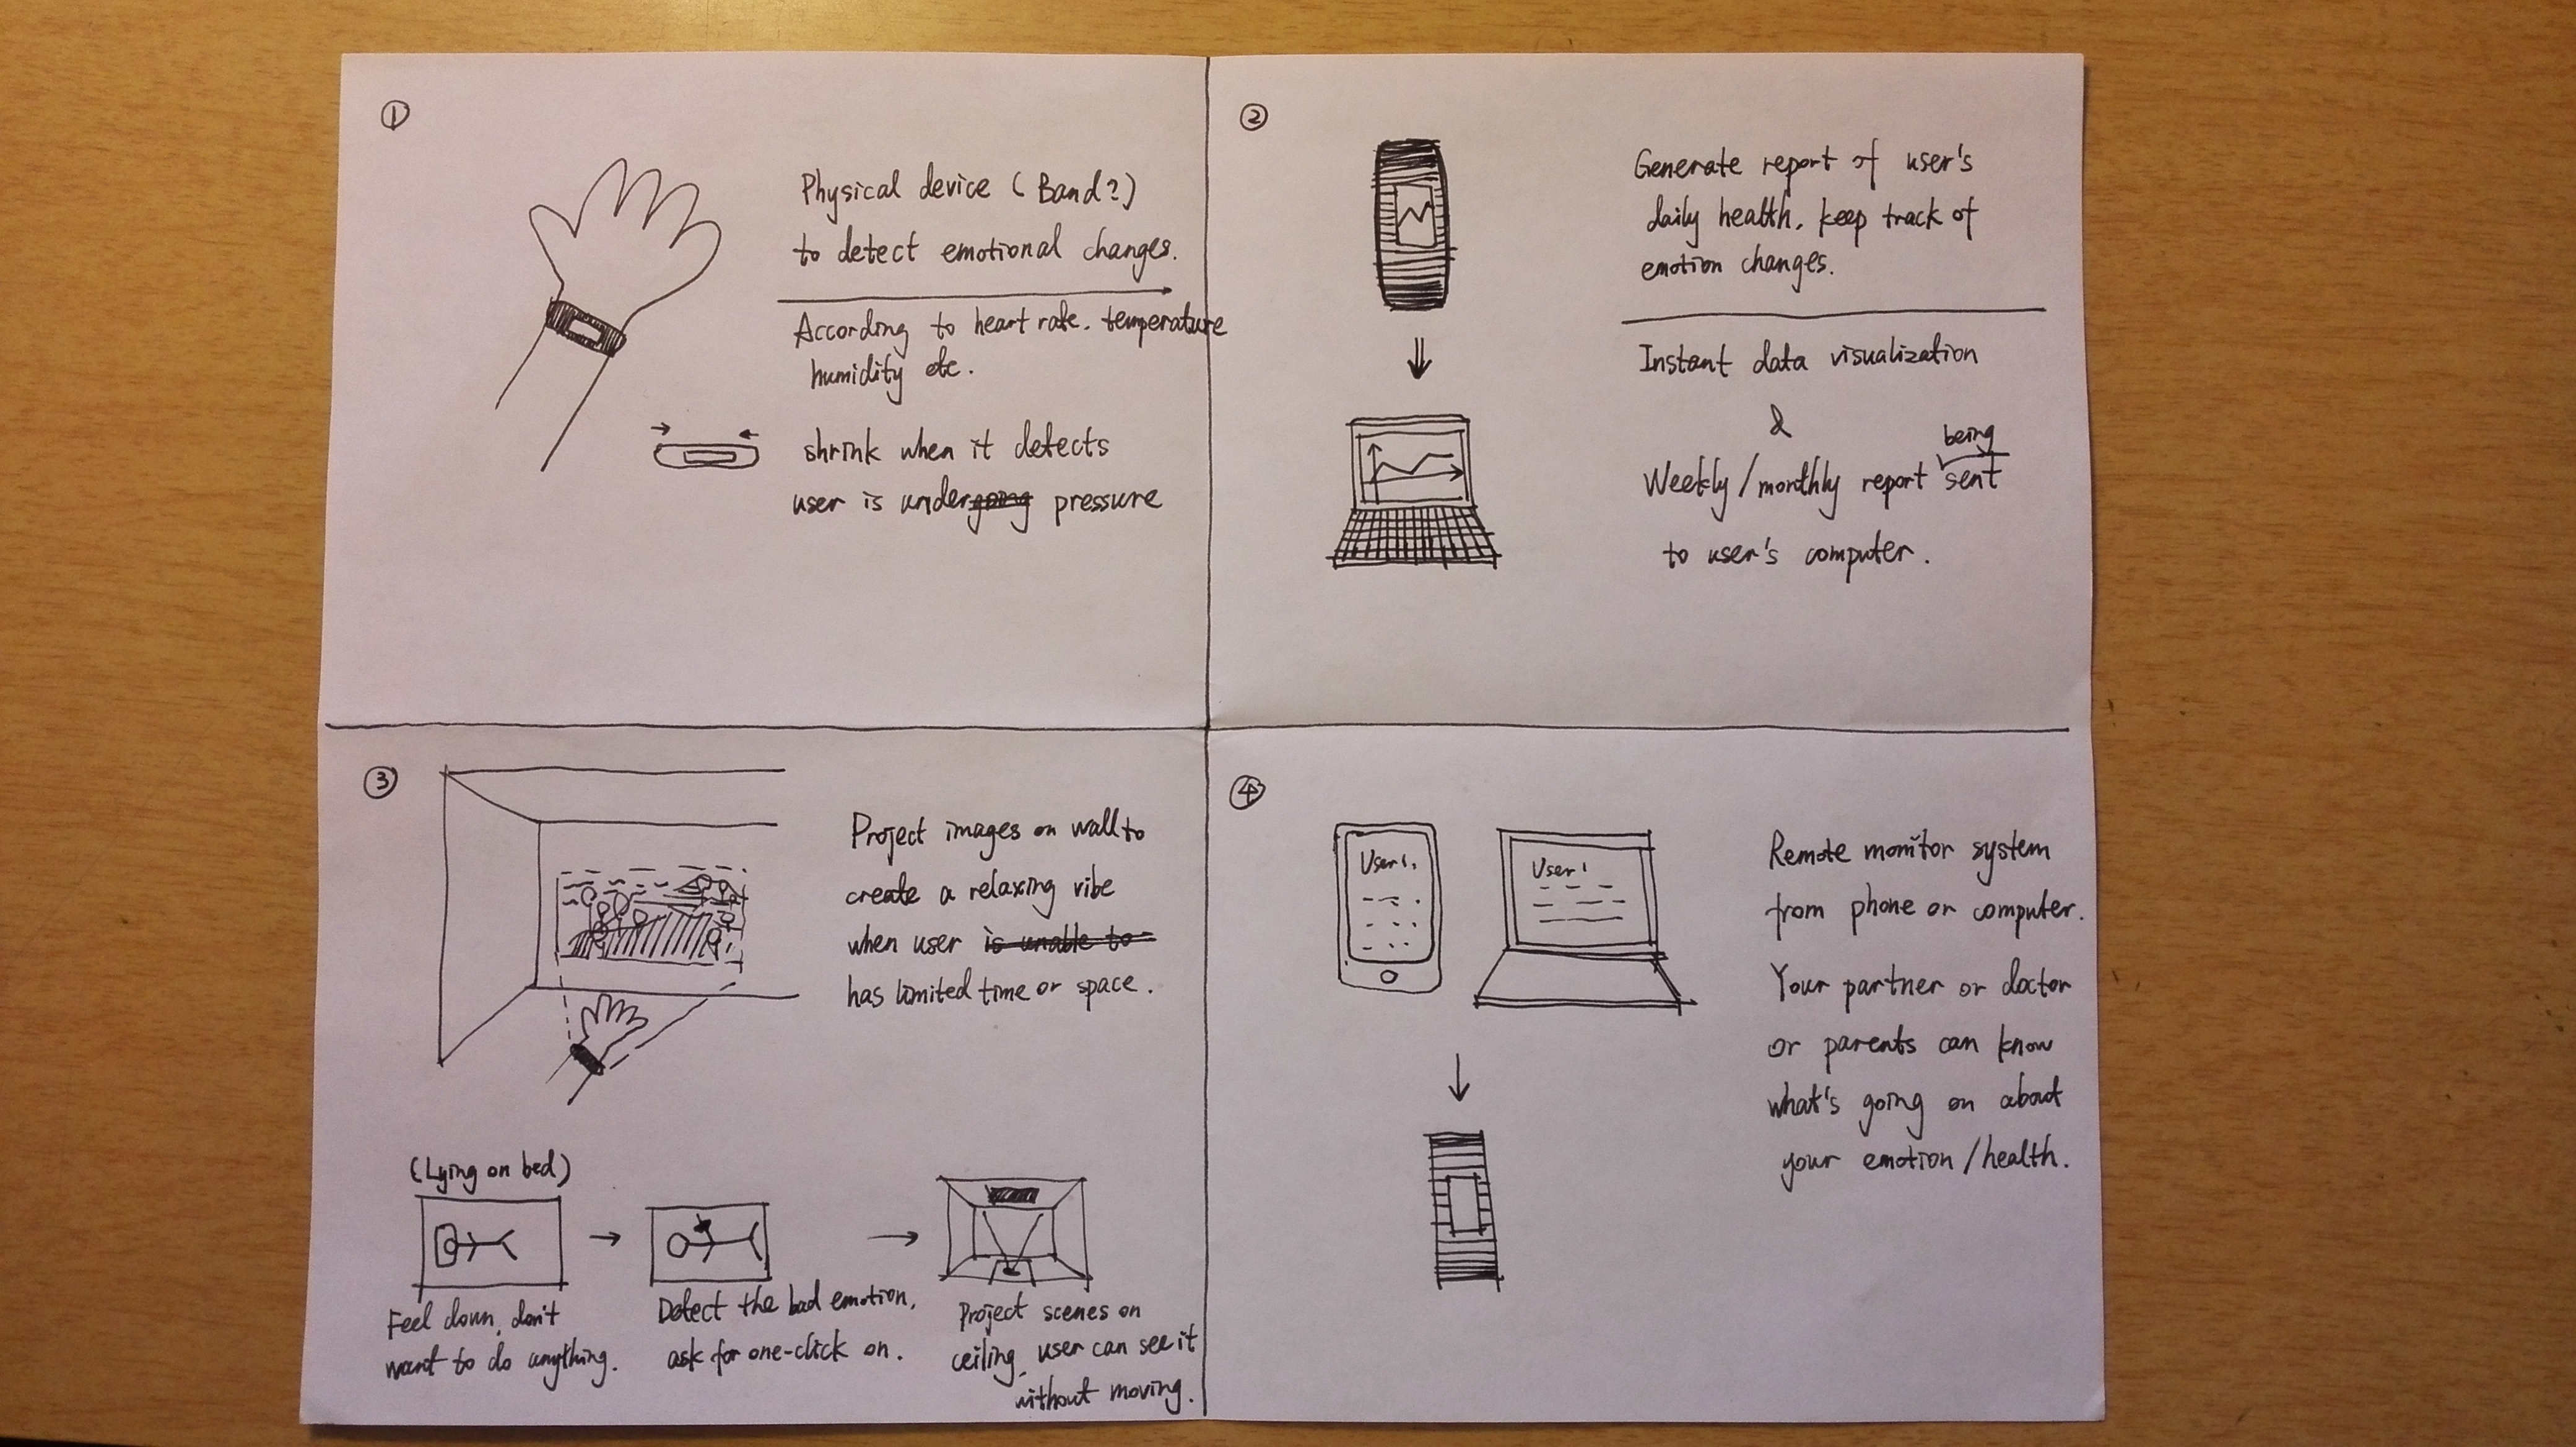 ①
Physical device (Band?)
to detect emotional changes.
According to heart rate. temperature
humidity etc.
shrink when it detects
user is undergoing pressure
②
Generate report of user's
daily health, keep track of
emotion changes.
Instant data visualization
&
being
Weekly/monthly report sent
to user's computer.
③
Project images on wall to
create a relaxing vibe
when user is unable to
has limited time or space.
(Lying on bed)
Feel down, don't
want to do anything.
Detect the bad emotion,
ask for one-click on.
Project scenes on
ceiling, user can see it
without moving.
④
User1.
User1
Remote monitor system
from phone or computer.
Your partner or doctor
or parents can know
what's going on about
your emotion/health.